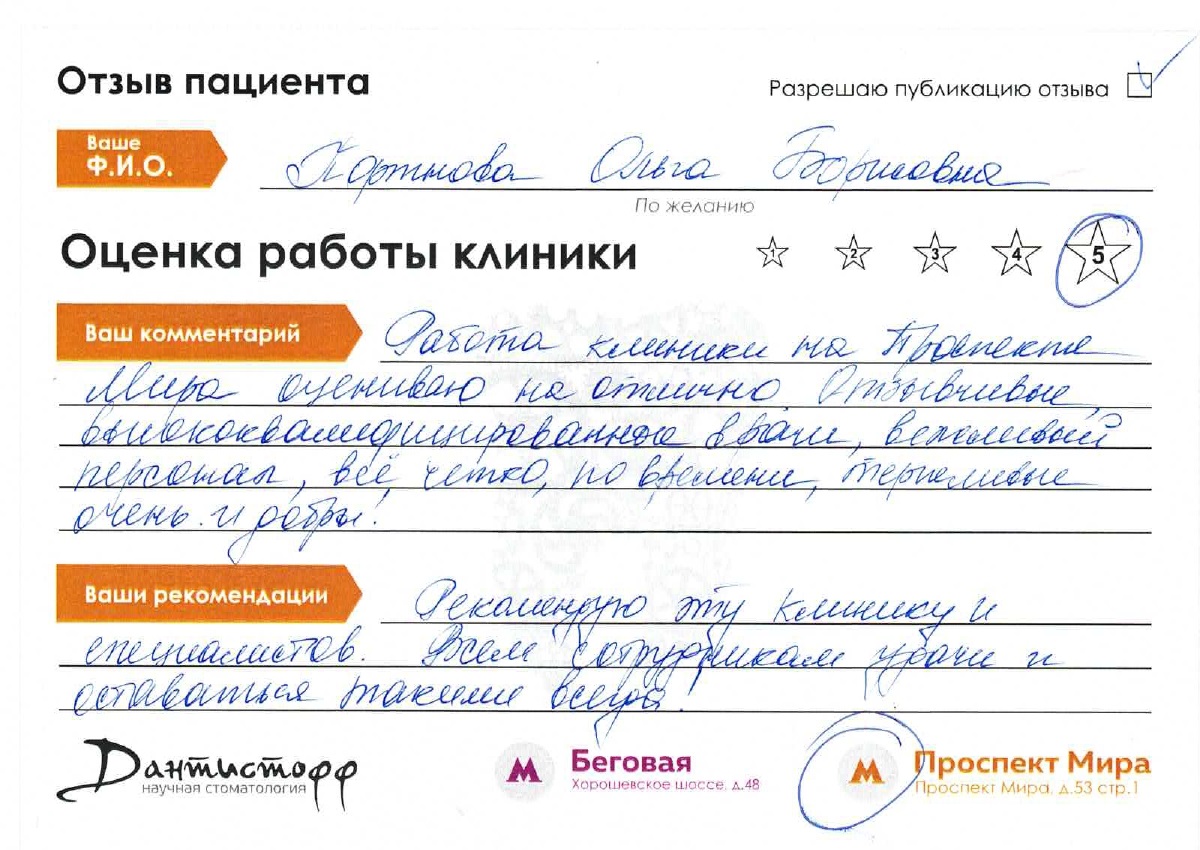 Отзыв пациента
Разрешаю публикацию отзыва
Ваше
Ф.И.О.
Портнова Ольга Борисовна
По желанию
Оценка работы клиники
1 2 3 4 5
Ваш комментарий
Работа клиники на Проспекте
Мира оцениваю на отлично Отзывчивые,
высококвалифицированные врачи, вежливый
персонал, всё четко, по времени, терпеливые
очень и добры!
Ваши рекомендации
Рекомендую эту клинику и
специалистов. Всем сотрудникам удачи и
оставаться такими всегда!
Дантистофф
научная стоматология
Беговая
Хорошевское шоссе, д.48
Проспект Мира
Проспект Мира, д.53 стр.1